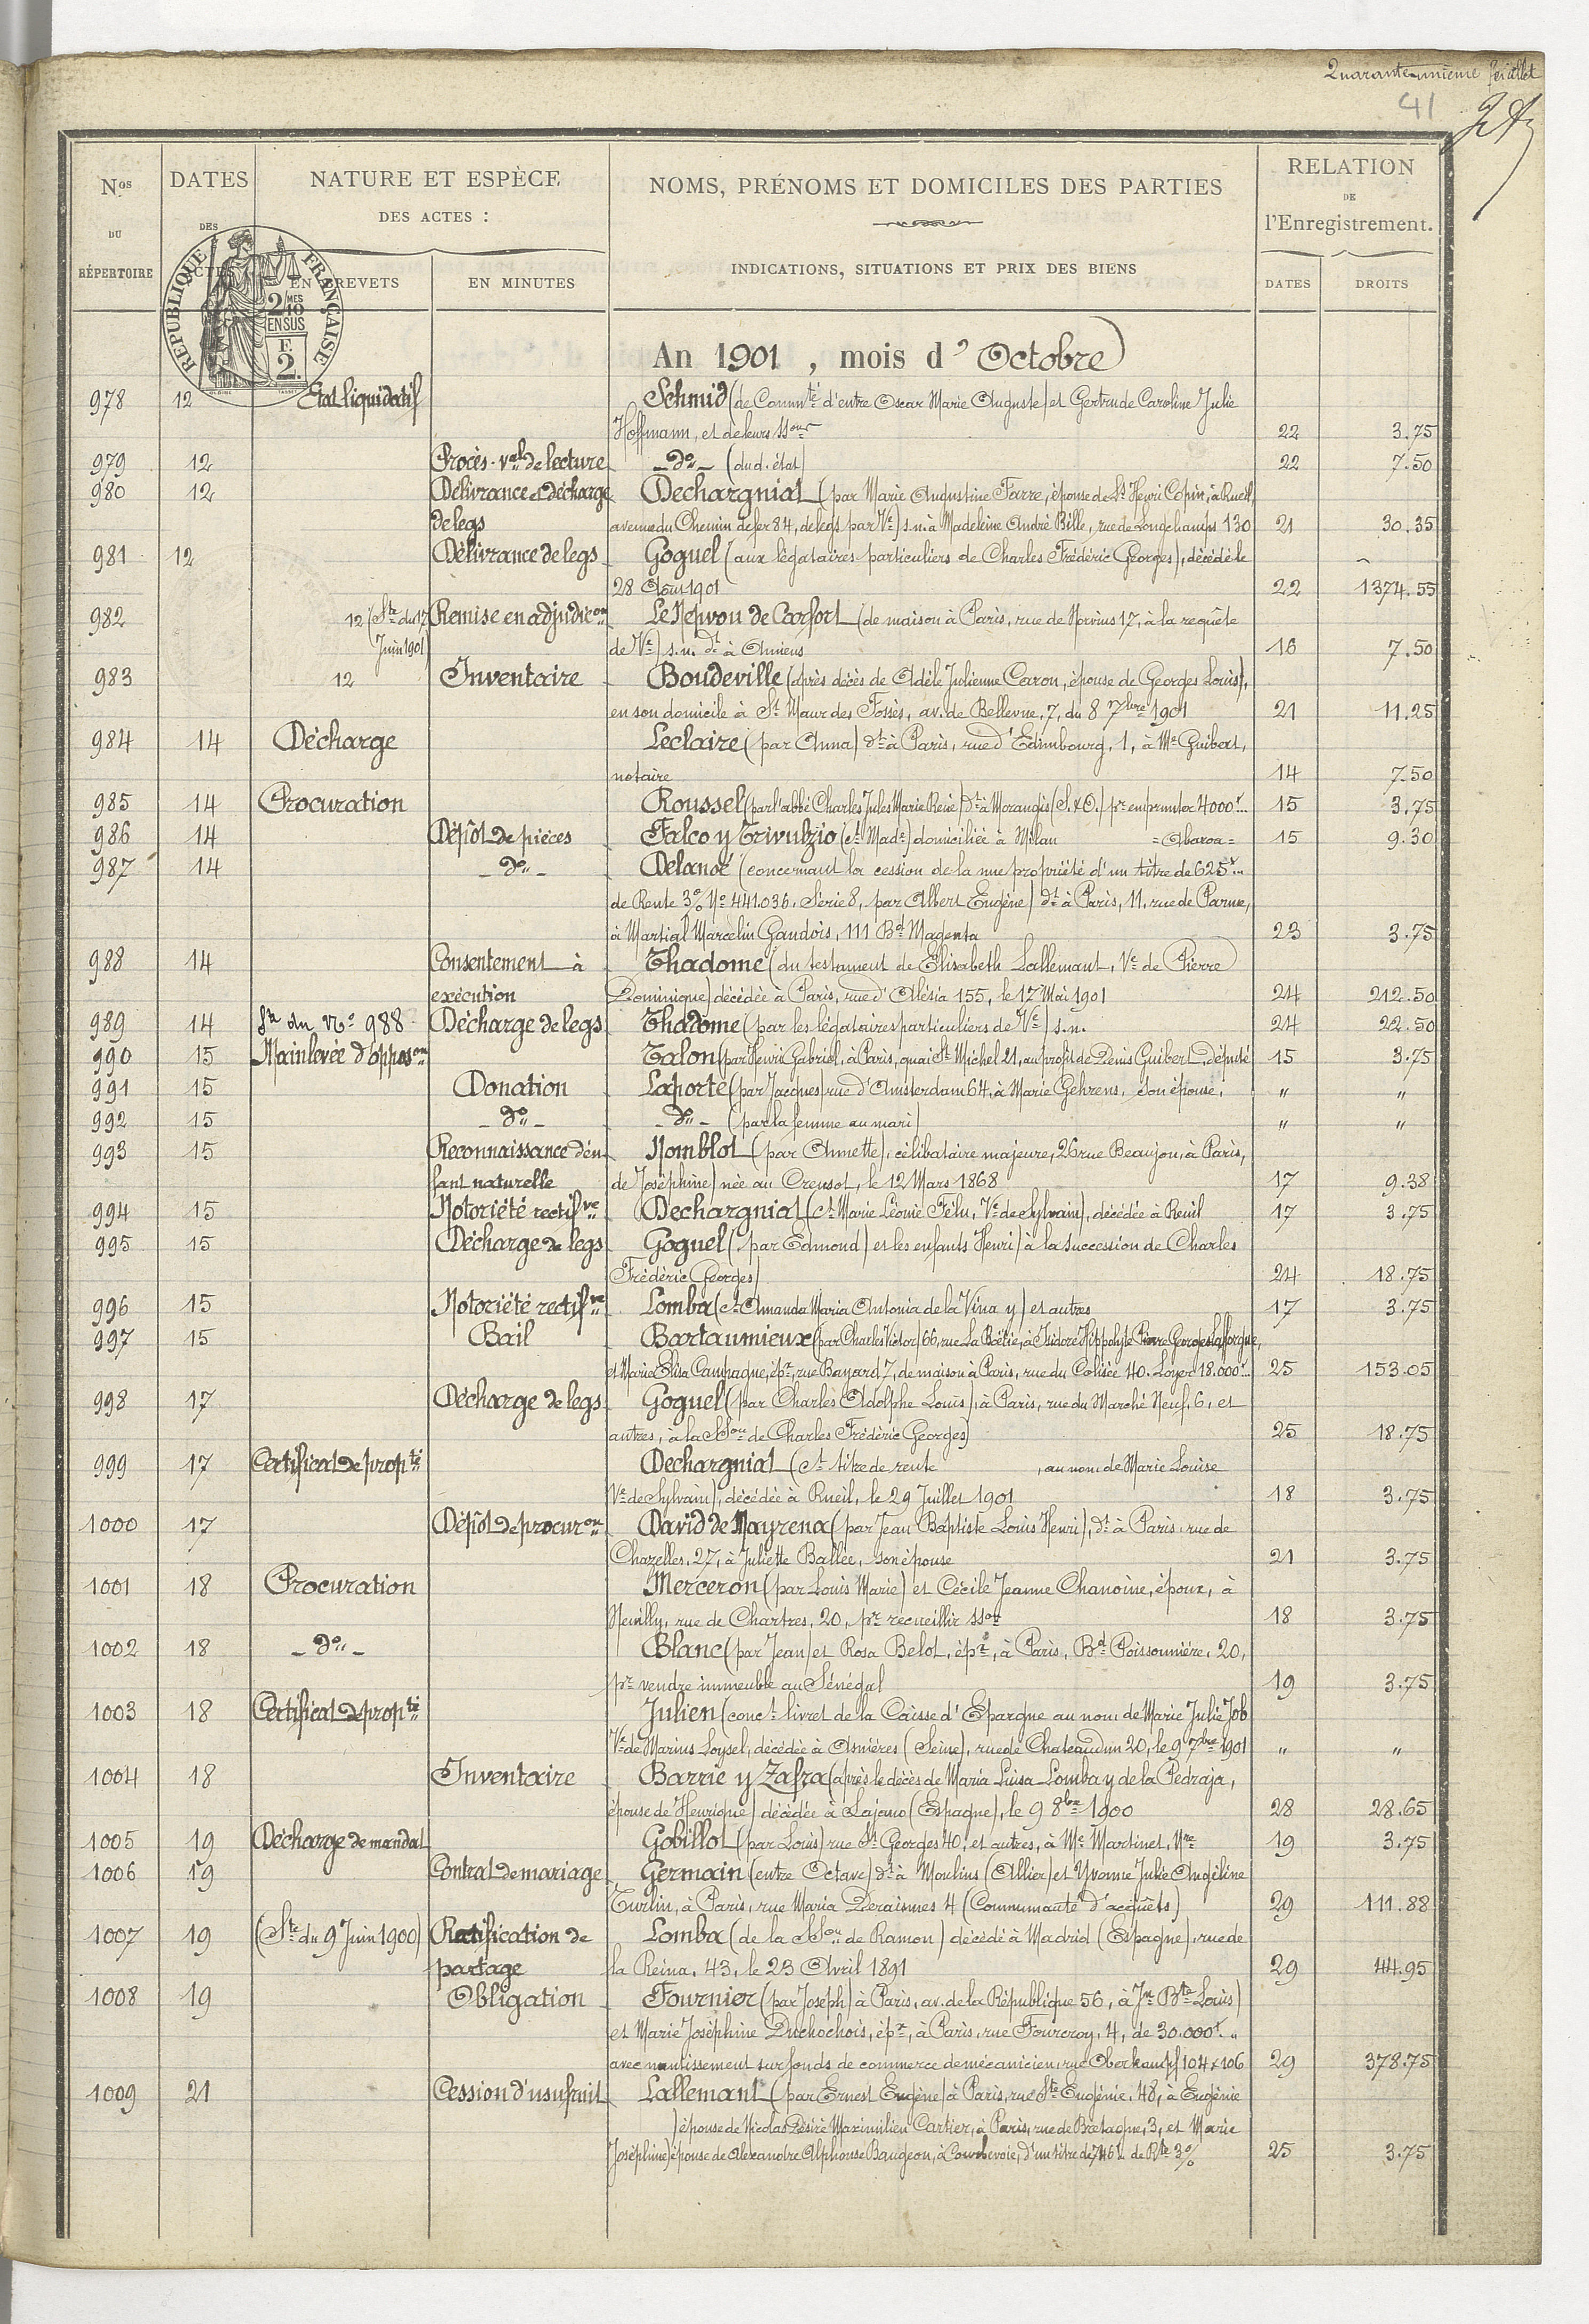 Quarante-unième feuillet
41
Nos DU RÉPERTOIRE
DATES DES ACTES
NATURE ET ESPÈCE DES ACTES :
EN BREVETS
EN MINUTES
NOMS, PRÉNOMS ET DOMICILES DES PARTIES
INDICATIONS, SITUATIONS ET PRIX DES BIENS
RELATION DE l'Enregistrement.
DATES
DROITS
RÉPUBLIQUE FRANÇAISE
2/10MES EN SUS
F. 2.
An 1901, mois d'Octobre
978 12 Etat liquidatif Schmid (de Commté d'entre Oscar Marie Auguste) et Gertrude Caroline Julie
Hoffmann, et de leurs SSons 22 3.75
979 12 Procès-val de lecture -do- (dud. état) 22 7.50
980 12 Délivrance et décharge Dechargniat (par Marie Augustine Farre, épouse de Ls Henri Copin, à Rueil
de legs avenue du Chemin de fer 84, de legs par Ve) s.n. à Madeleine André Bille, rue de Longchamps 130 21 30.35
981 12 Délivrance de legs Goguel (aux légataires particuliers de Charles Frédéric Georges), décédé le
28 Août 1901 22 1374.55
982 12 (Ste du 17 Remise en adjudicon Le Nepvou de Carfort (de maison à Paris, rue de Norvins 17, à la requête
Juin 1901) de Ve) s.n. dt à Amiens 16 7.50
983 12 Inventaire Boudeville (après décès de Adèle Julienne Caron, épouse de Georges Louis),
en son domicile à St Maur des Fossés, av. de Bellevue, 7, du 8 7bre 1901 21 11.25
984 14 Décharge Leclaire (par Anna) dt à Paris, rue d'Edimbourg, 1, à Me Guibert,
notaire 14 7.50
985 14 Procuration Roussel (par l'abbé Charles Jules Marie René) dt à Morangis (S.&O.) pr emprunter 4000f... 15 3.75
986 14 Dépôt de pièces Falco y Trivulzio (ct Made) domiciliée à Milan =Abaroa= 15 9.30
987 14 -do- Delanoë (concernant la cession de la nue propriété d'un titre de 625f...
de Rente 3% No 441.036. Série 8, par Albert Eugène) dt à Paris, 11, rue de Parme,
à Martial Marcelin Gandois, 111 Bd Magenta 23 3.75
988 14 Consentement à Thadome (du testament de Elisabeth Lallemant, Ve de Pierre
exécution Dominique) décédée à Paris, rue d'Alésia 155, le 17 Mai 1901 24 212.50
989 14 Ste du No 988 Décharge de legs Thadome (par les légataires particuliers de Ve) s.n. 24 22.50
990 15 Mainlevée d'opposon Talon (par Henri Gabriel, à Paris, quai St Michel 21, au profit de Denis Guibert, député 15 3.75
991 15 Donation Laporte (par Jacques) rue d'Amsterdam 64, à Marie Gehrens, son épouse, " "
992 15 -do- -do- (par la femme au mari) " "
993 15 Reconnaissance d'en- Nomblot (par Annette), célibataire majeure, 26 rue Beaujon, à Paris,
fant naturelle de Joséphine) née au Creusot, le 12 Mars 1868 17 9.38
994 15 Notoriété rectifve Dechargniat (ct Marie Léonie Félu, Ve de Sylvain), décédée à Reuil 17 3.75
995 15 Décharge de legs Goguel (par Edmond) et les enfants Henri) à la succession de Charles
Frédéric Georges) 24 18.75
996 15 Notoriété rectifve Lomba (ct Amanda Maria Antonia de la Vina y) et autres 17 3.75
997 15 Bail Bartaumieux (par Charles Victor) 66, rue La Boëtie, à Isidore Hippolyte Pierre Georges Lafforgue,
et Marie Elisa Campagne, épx, rue Bayard 7, de maison à Paris, rue du Colisée 40. Loyer 18.000f... 25 153.05
998 17 Décharge de legs Goguel (par Charles Adolphe Louis), à Paris, rue du Marché Neuf, 6, et
autres, à la SSon de Charles Frédéric Georges) 25 18.75
999 17 Certificat de propté Dechargniat (ct titre de rente , au nom de Marie Louise
Ve de Sylvain), décédée à Rueil, le 29 Juillet 1901 18 3.75
1000 17 Dépôt de procuron David de Mayrena (par Jean Baptiste Louis Henri), dt à Paris, rue de
Chazelles, 27, à Juliette Ballée, son épouse 21 3.75
1001 18 Procuration Merceron (par Louis Marie) et Cécile Jeanne Chanoine, époux, à
Neuilly, rue de Chartres, 20, pr recueillir SSon 18 3.75
1002 18 -do- Blanc (par Jean) et Rosa Belot, épx, à Paris, Bd Poissonnière, 20,
pr vendre immeuble au Sénégal 19 3.75
1003 18 Certificat de propté Julien (conct livret de la Caisse d'Epargne au nom de Marie Julie Job
Ve de Marius Loysel, décédée à Asnières (Seine), rue de Chateaudun 20, le 9 7bre 1901 " "
1004 18 Inventaire Barrie y Zafra (après le décès de Maria Luisa Lomba y de la Pedraja,
épouse de Henrique) décédée à Lajano (Espagne), le 9 8bre 1900 28 28.65
1005 19 Décharge de mandat Gobillot (par Louis) rue St Georges 40, et autres, à Me Martinet, Nre 19 3.75
1006 19 Contrat de mariage Germain (entre Octave) dt à Moulins (Allier) et Yvonne Julie Angéline
Turlin, à Paris, rue Maria Deraismes 4 (Communauté d'acquêts) 29 111.88
1007 19 (Ste du 9 Juin 1900) Ratification de Lomba (de la SSon de Ramon) décédé à Madrid (Espagne), rue de
partage la Reina, 43, le 23 Avril 1891 29 44.95
1008 19 Obligation Fournier (par Joseph) à Paris, av. de la République 56, à Jn Bte Louis)
et Marie Joséphine Duchochois, épx, à Paris, rue Fourcroy, 4, de 30.000f.
avec nantissement sur fonds de commerce de mécanicien, rue Oberkampf 104 & 106 29 378.75
1009 21 Cession d'usufruit Lallemant (par Ernest Eugène) à Paris, rue Ste Eugénie, 48, à Eugénie
) épouse de Nicolas Désiré Maximilien Cartier, à Paris, rue de Bretagne, 3, et Marie
Joséphine) épouse de Alexandre Alphonse Baugeon, à Courbevoie, d'un titre de 746f de Rte 3% 25 3.75